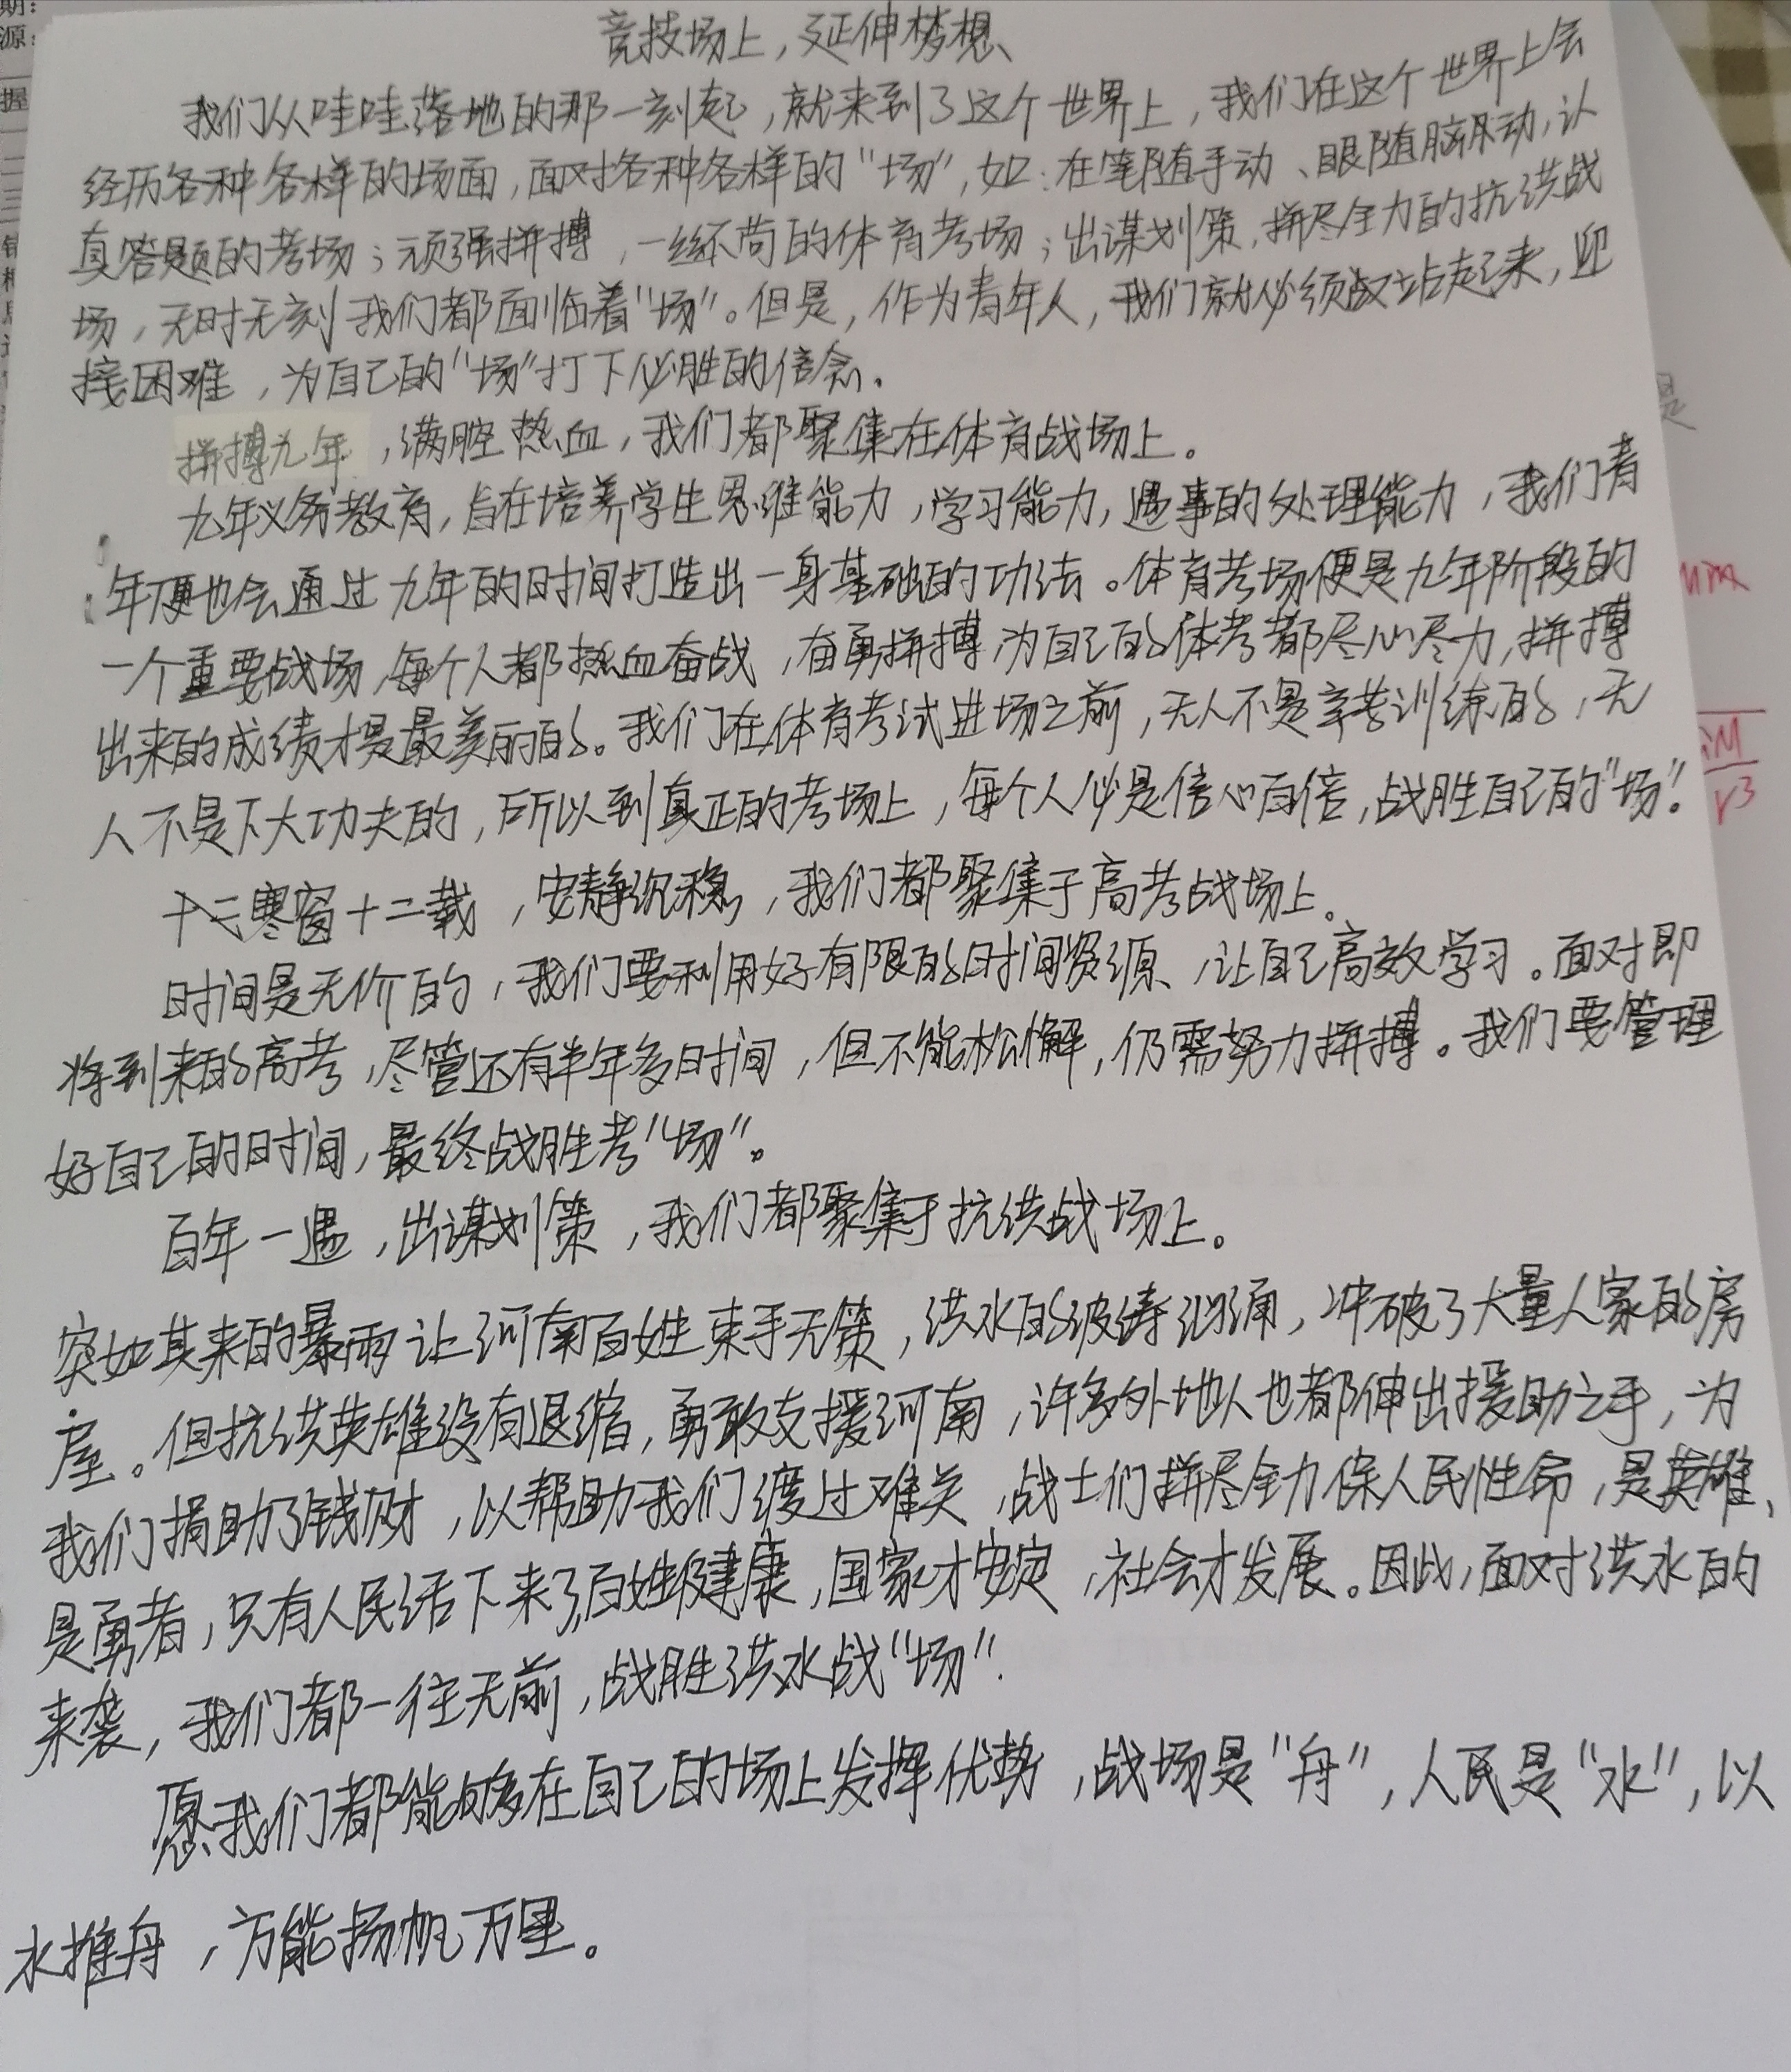 竞技场上，延伸梦想
我们从哇哇落地的那一刻起，就来到了这个世界上，我们在这个世界上会
经历各种各样的场面，面对各种各样的“场”，如：在笔随手动、眼随脑动，认
真答题的考场；顽强拼搏，一丝不苟的体育考场；出谋划策，拼尽全力的抗洪战
场，无时无刻我们都面临着“场”。但是，作为青年人，我们就必须站起来，迎
接困难，为自己的“场”打下必胜的信念。
拼搏九年，满腔热血，我们都聚集在体育战场上。
九年义务教育，旨在培养学生思维能力，学习能力，遇事的处理能力，我们青
年便也会通过九年的时间打造出一身基础的功法。体育考场便是九年阶段的
一个重要战场，每个人都热血奋战，奋勇拼搏，为自己的体考都尽心尽力，拼搏
出来的成绩才是最美丽的。我们在体育考试进场之前，无人不是辛苦训练的，无
人不是下大功夫的，所以到真正的考场上，每个人必是信心百倍，战胜自己的“场”！
寒窗十二载，安静沉稳，我们都聚集于高考战场上。
时间是无价的，我们要利用好有限的时间资源、让自己高效学习。面对即
将到来的高考，尽管还有半年多时间，但不能松懈，仍需努力拼搏。我们要管理
好自己的时间，最终战胜考“场”。
百年一遇，出谋划策，我们都聚集于抗洪战场上。
突如其来的暴雨让河南百姓束手无策，洪水的波涛汹涌，冲破了大量人家的房
屋。但抗洪英雄没有退缩，勇敢支援河南，许多外地人也都伸出援助之手，为
我们捐助了钱财，以帮助我们渡过难关，战士们拼尽全力保人民性命，是英雄、
是勇者，只有人民活下来了，百姓健康，国家才安定，社会才发展。因此，面对洪水的
来袭，我们都一往无前，战胜洪水战“场”.
愿我们都能够在自己的场上发挥优势，战场是“舟”，人民是“水”，以
水推舟，方能扬帆万里。
期：
源：
握
一
二
三
是
r³